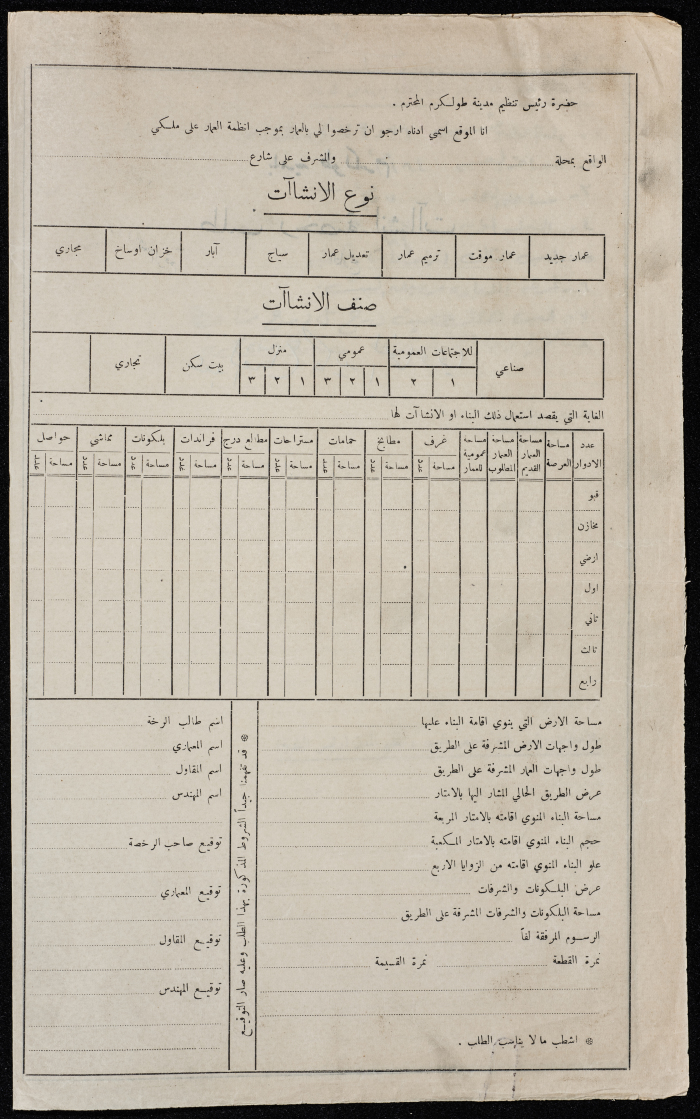 حضرة رئيس تنظيم مدينة طولكرم المحترم .
انا الموقع اسمي ادناه ارجو ان ترخصوا لي بالعمار بموجب انظمة العمار على ملكي
الواقع بمحلة والمشرف على شارع
نوع الانشاآت
عمار جديد عمار موقت ترميم عمار تعديل عمار سياج آبار خزان اوساخ مجاري
صنف الانشاآت
صناعي للاجتماعات العمومية عمومي منزل بيت سكن تجاري
١ ٢ ١ ٢ ٣ ١ ٢ ٣
الغاية التي يقصد استعمال ذلك البناء او الانشاآت لها
عدد الادوار مساحة العرصة مساحة العمار القديم مساحة العمار المطلوب مساحة عمومية للعمار غرف مطابخ حمامات مستراحات مطالع درج فراندات بلكونات مماشي حواصل
مساحة عدد مساحة عدد مساحة عدد مساحة عدد مساحة عدد مساحة عدد مساحة عدد مساحة عدد مساحة عدد
قبو
مخازن
ارضي
اول
ثاني
ثالث
رابع
مساحة الارض التي ينوي اقامة البناء عليها
طول واجهات الارض المشرفة على الطريق
طول واجهات العمار المشرفة على الطريق
عرض الطريق الحالي المشار اليها بالامتار
مساحة البناء المنوي اقامته بالامتار المربعة
حجم البناء المنوي اقامته بالامتار المكعبة
علو البناء المنوي اقامته من الزوايا الاربع
عرض البلكونات والشرفات
مساحة البلكونات والشرفات المشرفة على الطريق
الرسوم المرفقة لفاً
نمرة القطعة نمرة القسيمة
※ اشطب ما لا يناسب الطلب .
※ قد تفهمنا جيداً الشروط المذكورة بهذا الطلب وعليه صار التوقيع
اسم طالب الرخة
اسم المعماري
اسم المقاول
اسم المهندس
توقيع صاحب الرخصة
توقيع المعماري
توقيع المقاول
توقيع المهندس